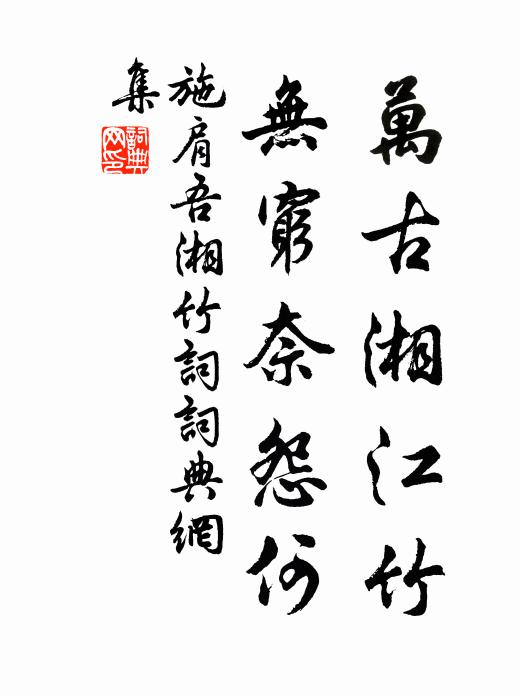 萬古湘江竹
無窮奈怨何
施肩吾湘竹詞詞典網
集
詞典網印